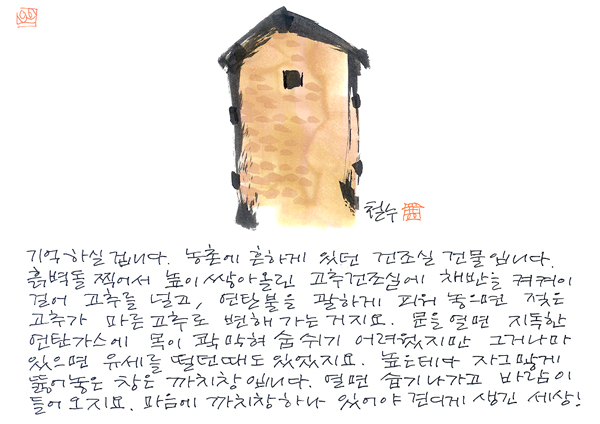 철수
기억하실 겁니다. 농촌에 흔하게 있던 건조실 건물입니다.
흙벽돌 찍어서 높이 쌓아올린 고추건조실에 채반을 켜켜이
걸어 고추를 널고, 연탄불을 괄하게 피워 놓으면 젖은
고추가 마른고추로 변해가는거지요. 문을 열면 지독한
연탄가스에 목이 콱 막혀 숨쉬기 어려웠지만 그거나마
있으면 유세를 떨던때도 있었지요. 높은데다 자그맣게
뚫어놓은 창은 까치창입니다. 열면 습기 나가고 바람이
들어오지요. 마음에 까치창 하나 있어야 견디게 생긴 세상!